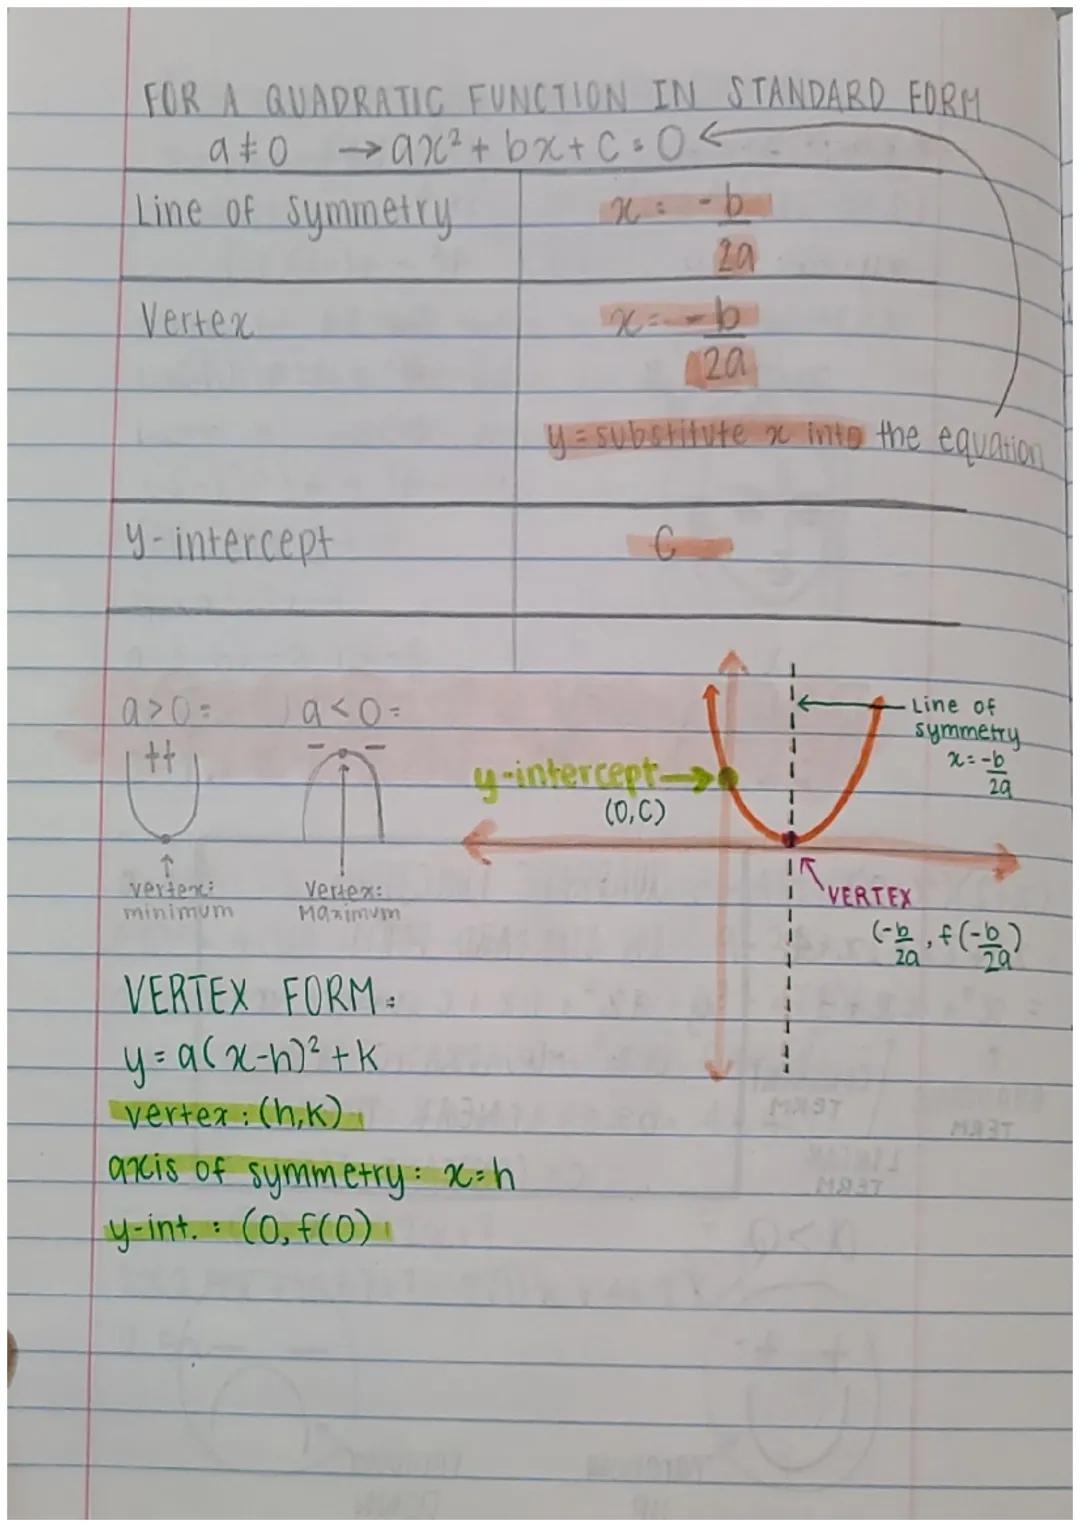 FOR A QUADRATIC FUNCTION IN STANDARD FORM
a ≠ 0 → ax² + bx + c = 0
Line of symmetry
x = -b
2a
Vertex
x = -b
2a
y = substitute x into the equation
y-intercept
C
a > 0 =
a < 0 =
++
- -
vertex:
minimum
Vertex:
Maximum
y-intercept
(0, C)
Line of
symmetry
x = -b
2a
VERTEX
(-b/2a, f(-b/2a)
VERTEX FORM:
y = a(x-h)² + k
vertex: (h,k)
axis of symmetry: x=h
y-int. : (0, f(0)